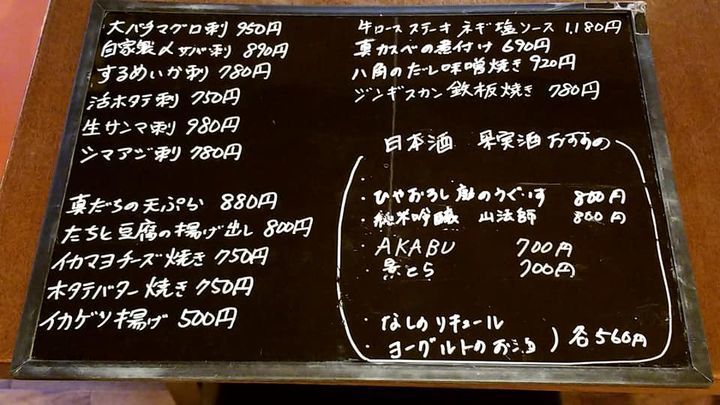 大バチマグロ刺 950円
自家製〆サバ刺 890円
するめいか刺 780円
活ホタテ刺 750円
生サンマ刺 980円
シマアジ刺 780円
真だちの天ぷら 880円
たちと豆腐の揚げ出し 800円
イカマヨチーズ焼き 750円
ホタテバター焼き 750円
イカゲソ揚げ 500円
牛ロースステーキ ネギ塩ソース 1,180円
真カスベの煮付け 690円
八角のだし味噌焼き 920円
ジンギスカン鉄板焼き 780円
日本酒 果実酒 おすすめ
・ひやおろし 庭のうぐいす 800円
・純米吟醸 山法師 800円
・AKABU 700円
・景とら 700円
・なしのリキュール
・ヨーグルトのお酒 ) 各560円